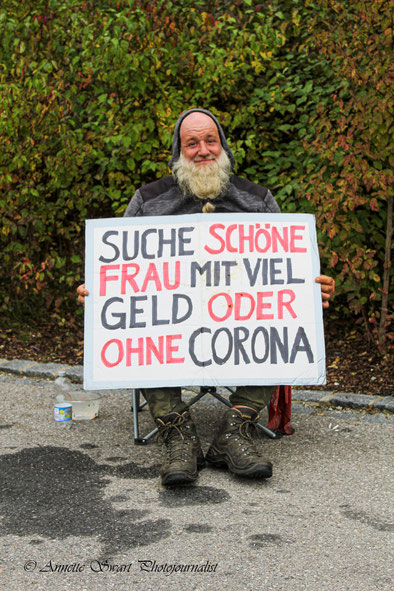 SUCHE SCHÖNE
FRAU MIT VIEL
GELD ODER
OHNE CORONA
© Annette Swart Photojournalist